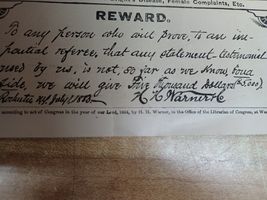 Disease, Female Complaints, Etc.
REWARD.
To any person who will prove, to an im-
partial referee, that any statement-testimonial
used by us, is not, so far as we know, bona
fide, we will give Five Thousand Dollars ($5,000).
Rochester N.Y. July 1, H. H. Warner & Co.
according to act of Congress in the year of our Lord, 1884, by H. H. Warner, in the Office of the Librarian of Congress, at Was